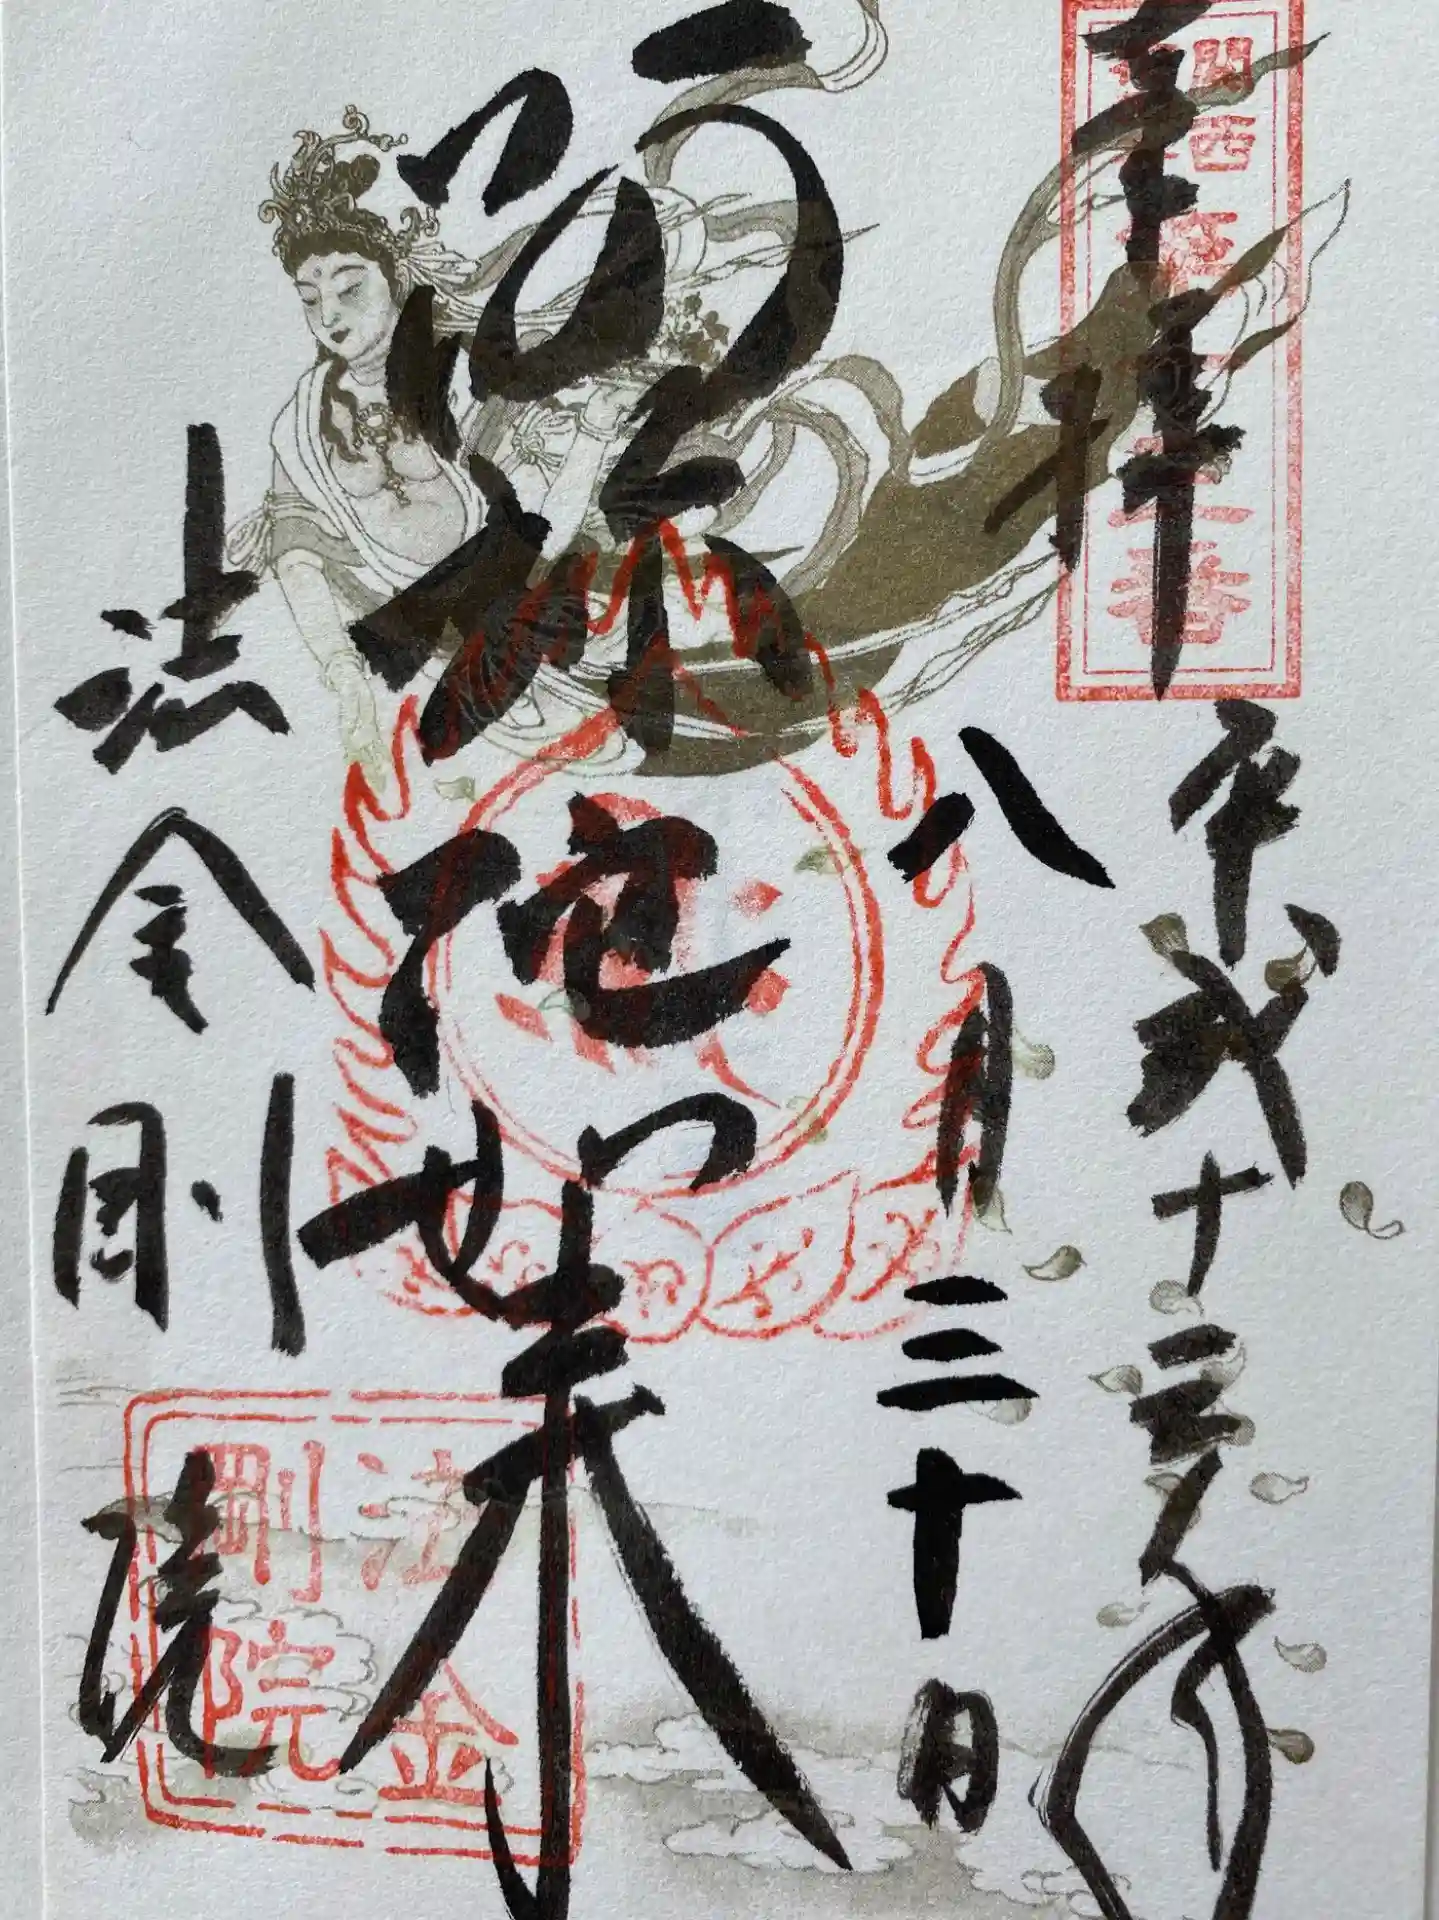 奉拝
平成十
八月三十日
阿弥陀如来
法金剛院
関西
番
法金
剛院